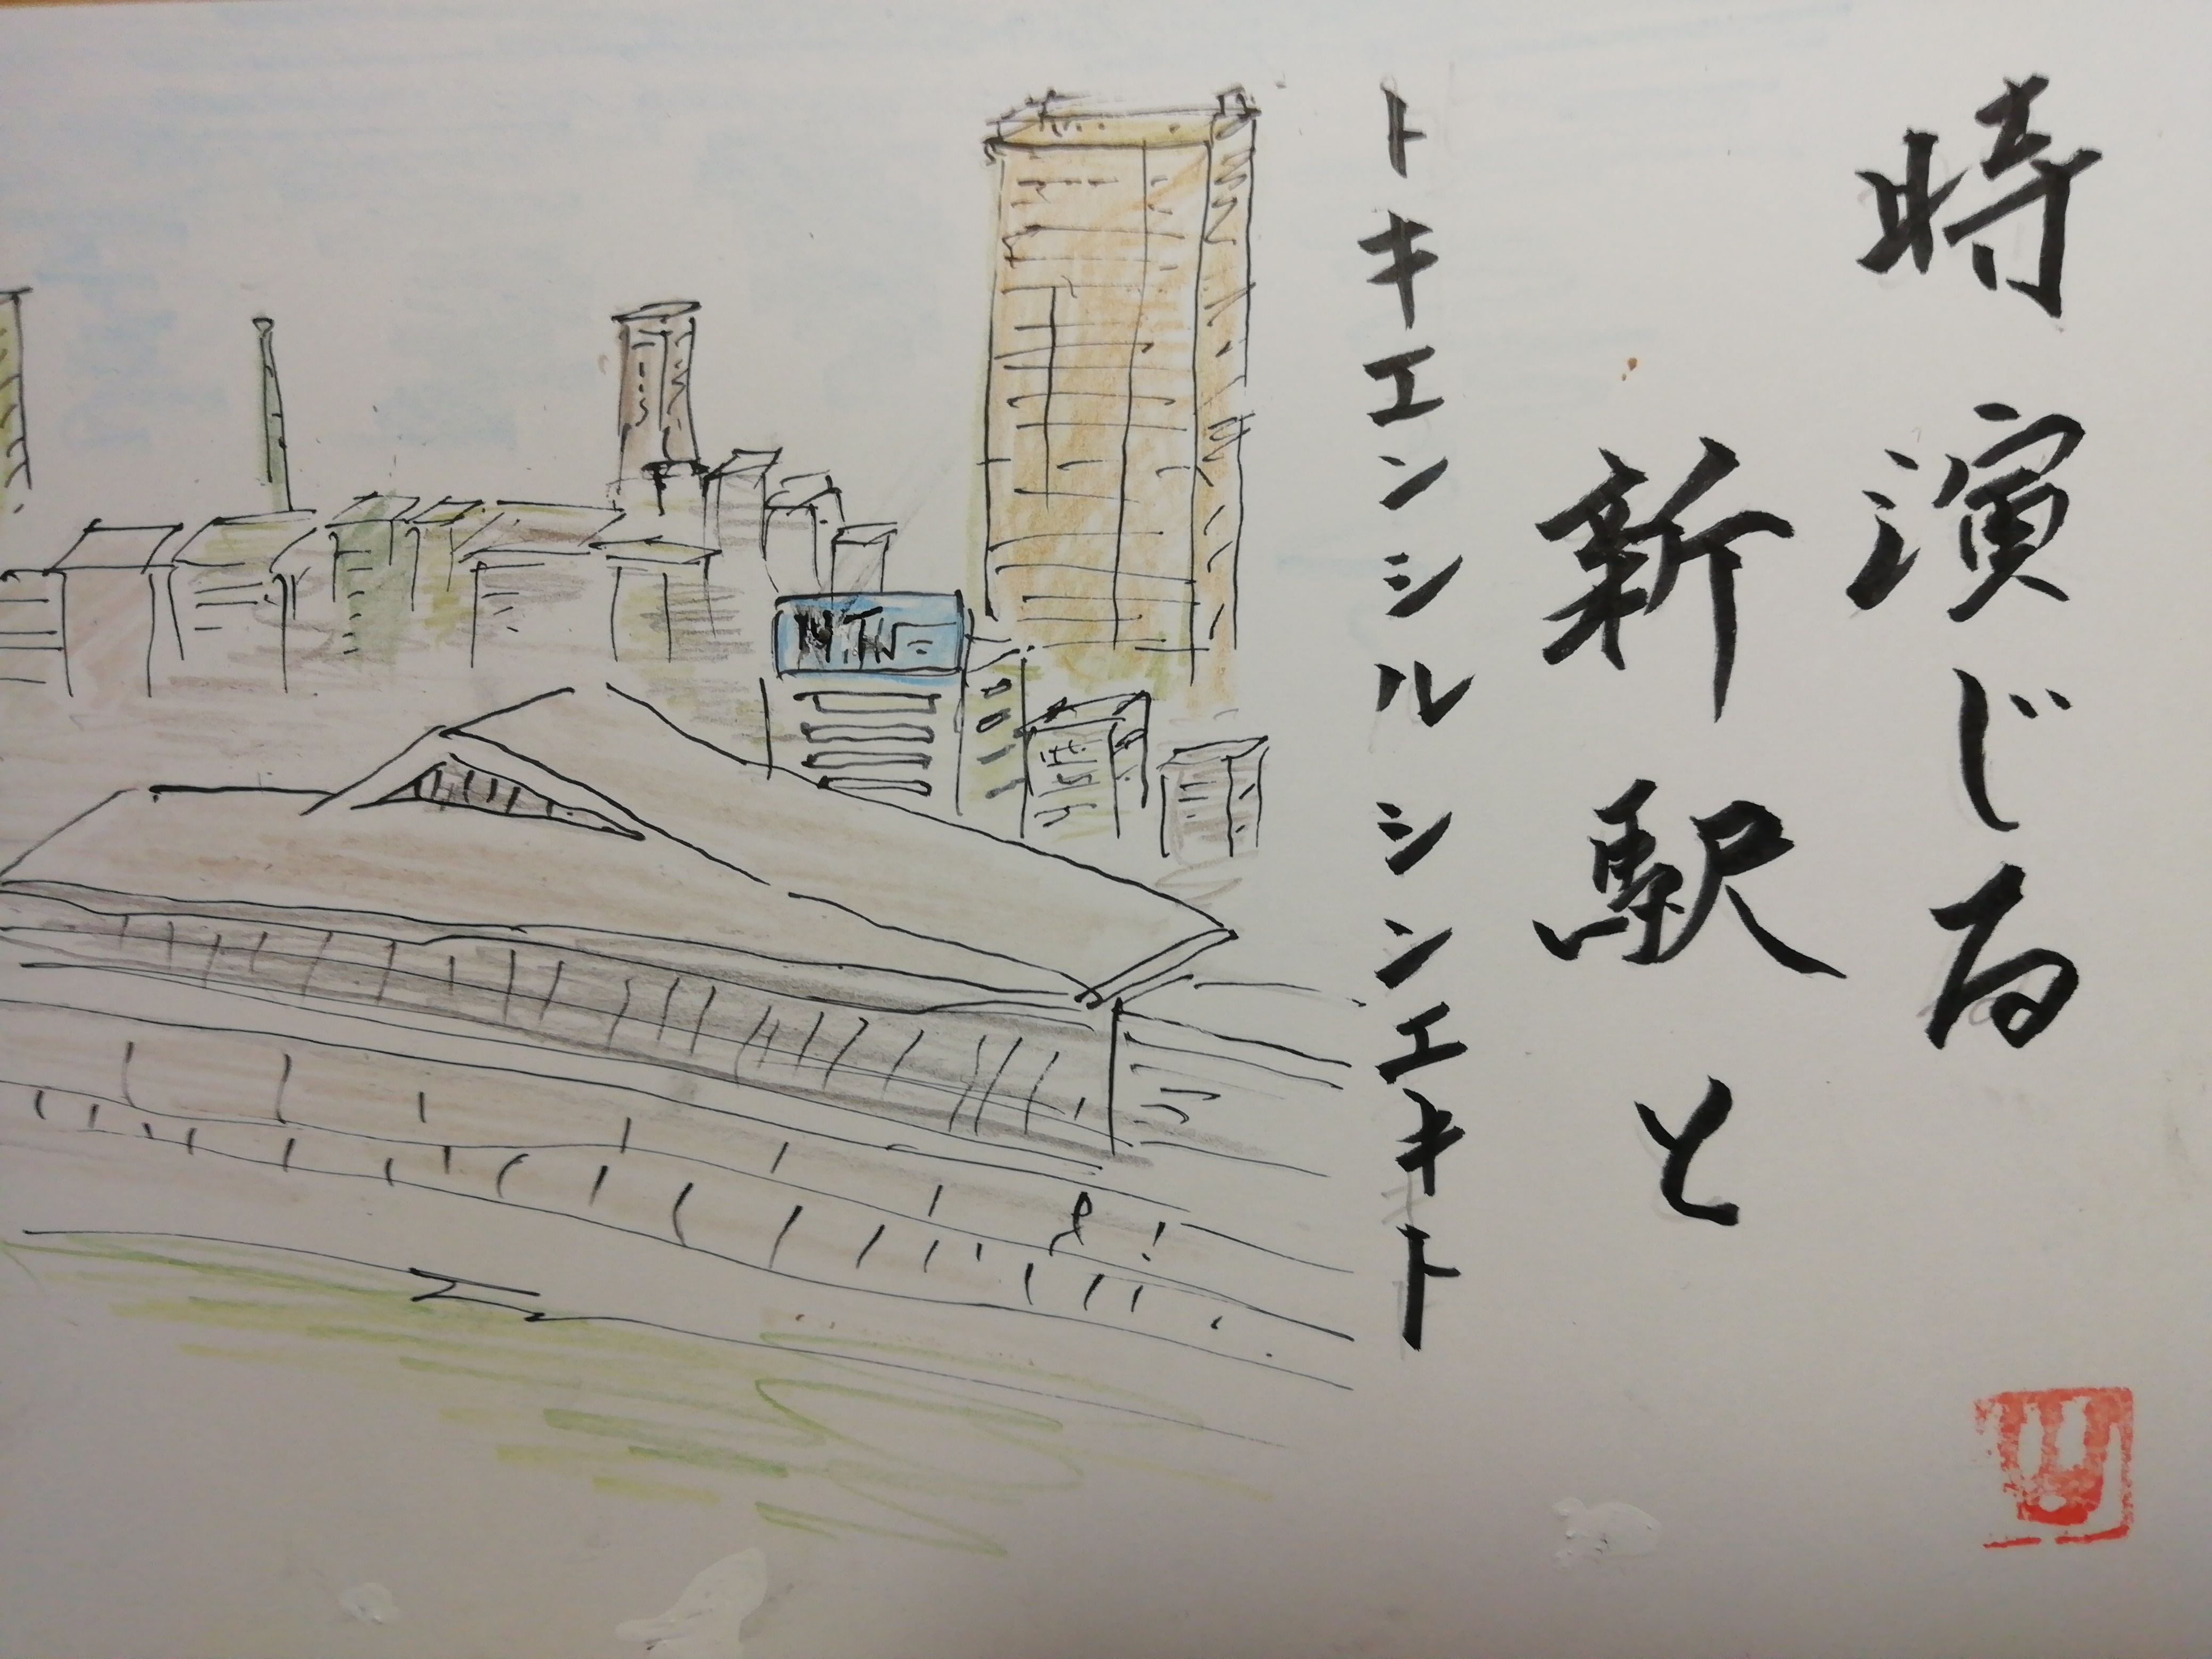 時演じる
新駅と
トキエンシルシンエキト